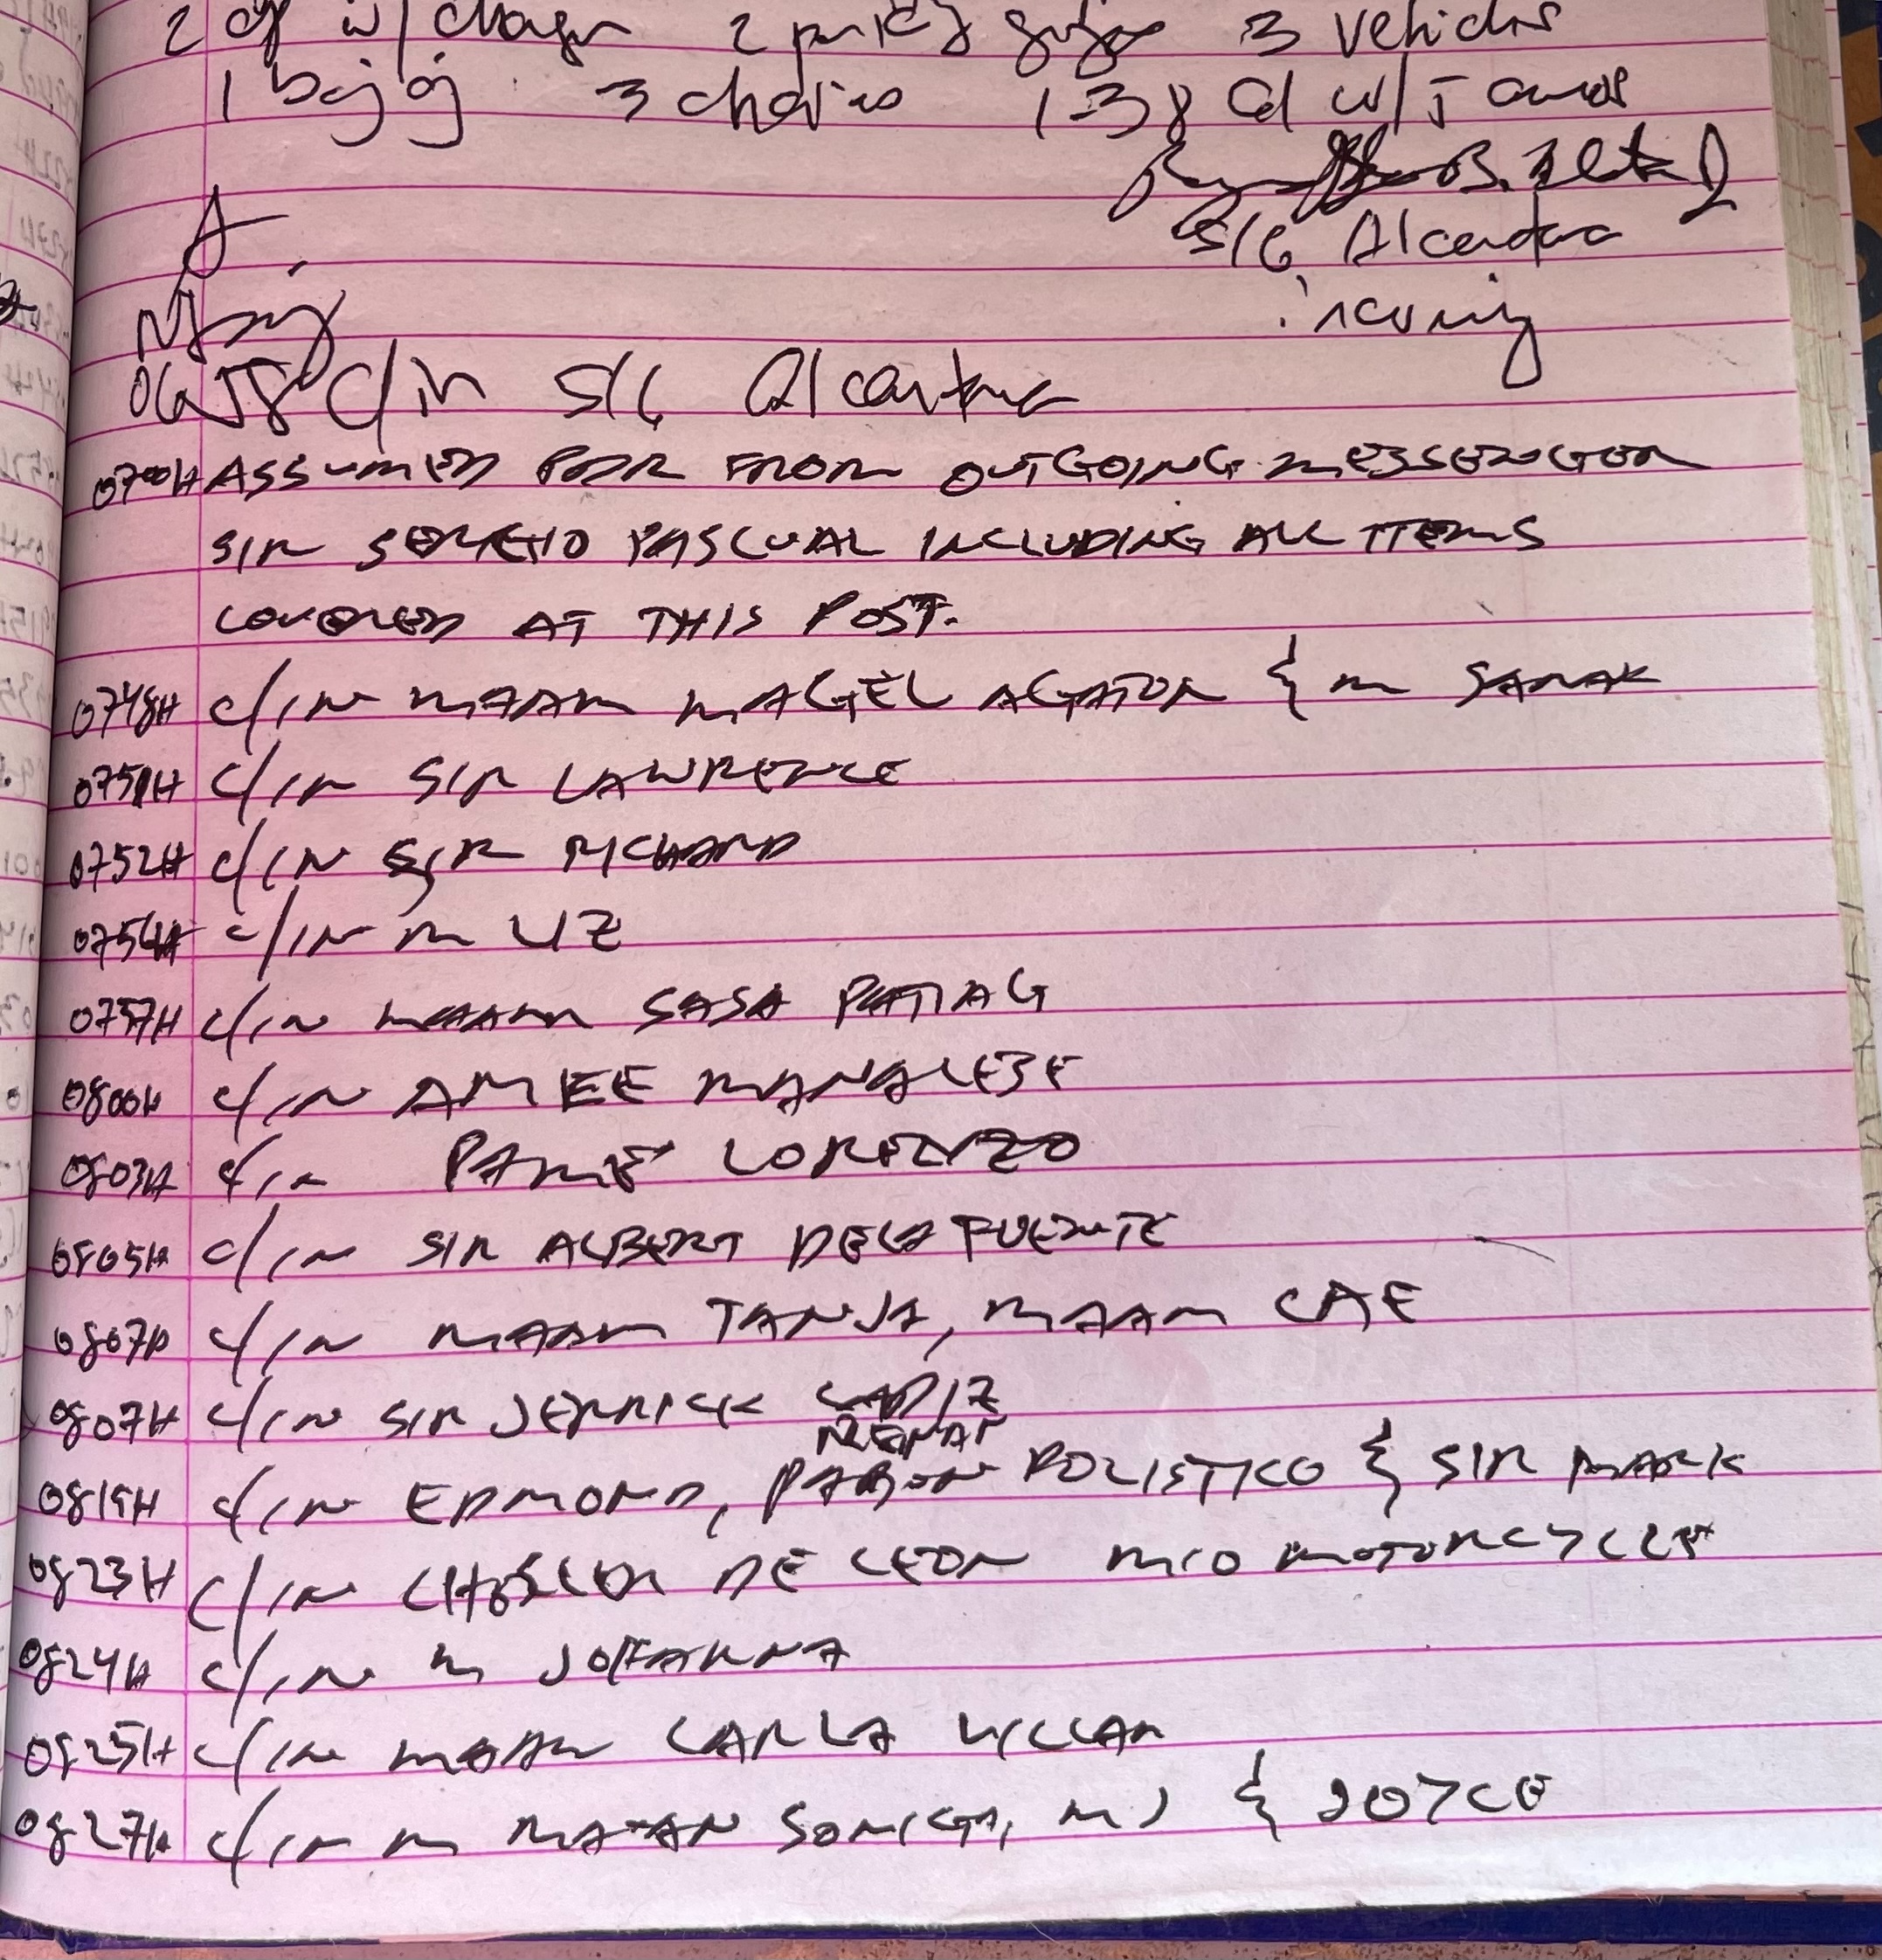 2 cp w/ charger 2 3 vehicles
1 3 chairs 1-38 Cal w/ 5 ammos
S/G Alcantara
incoming
0658 C/in S/G Alcantara
0700H ASSUMED FROM OUTGOING MESSENGER
SIR SERGIO PASCUAL INCLUDING ALL ITEMS
COVERED AT THIS POST.
0748H C/IN MAAM MAGEL AGATON & M SARAK
C/IN SIR LAWRENCE
0752H C/IN SIR RICHARD
C/IN M LIZ
0757H C/IN MAAM SASA PATIAG
0800H C/IN AMEE
0803H C/IN LORENZO
0805H C/IN SIR ALBERT DELA FUENTE
0807H C/IN MAAM TANJA, MAAM CAE
0807H C/IN SIR JERRICK CADIZ
0819H C/IN EDMOND, POLISTICO & SIR MARK
0823H C/IN DE LEON M/O MOTORCYCLE
0824H C/IN M
0825H C/IN MAAM CARLA VILLAR
0827H C/IN M MJ & JOYCE